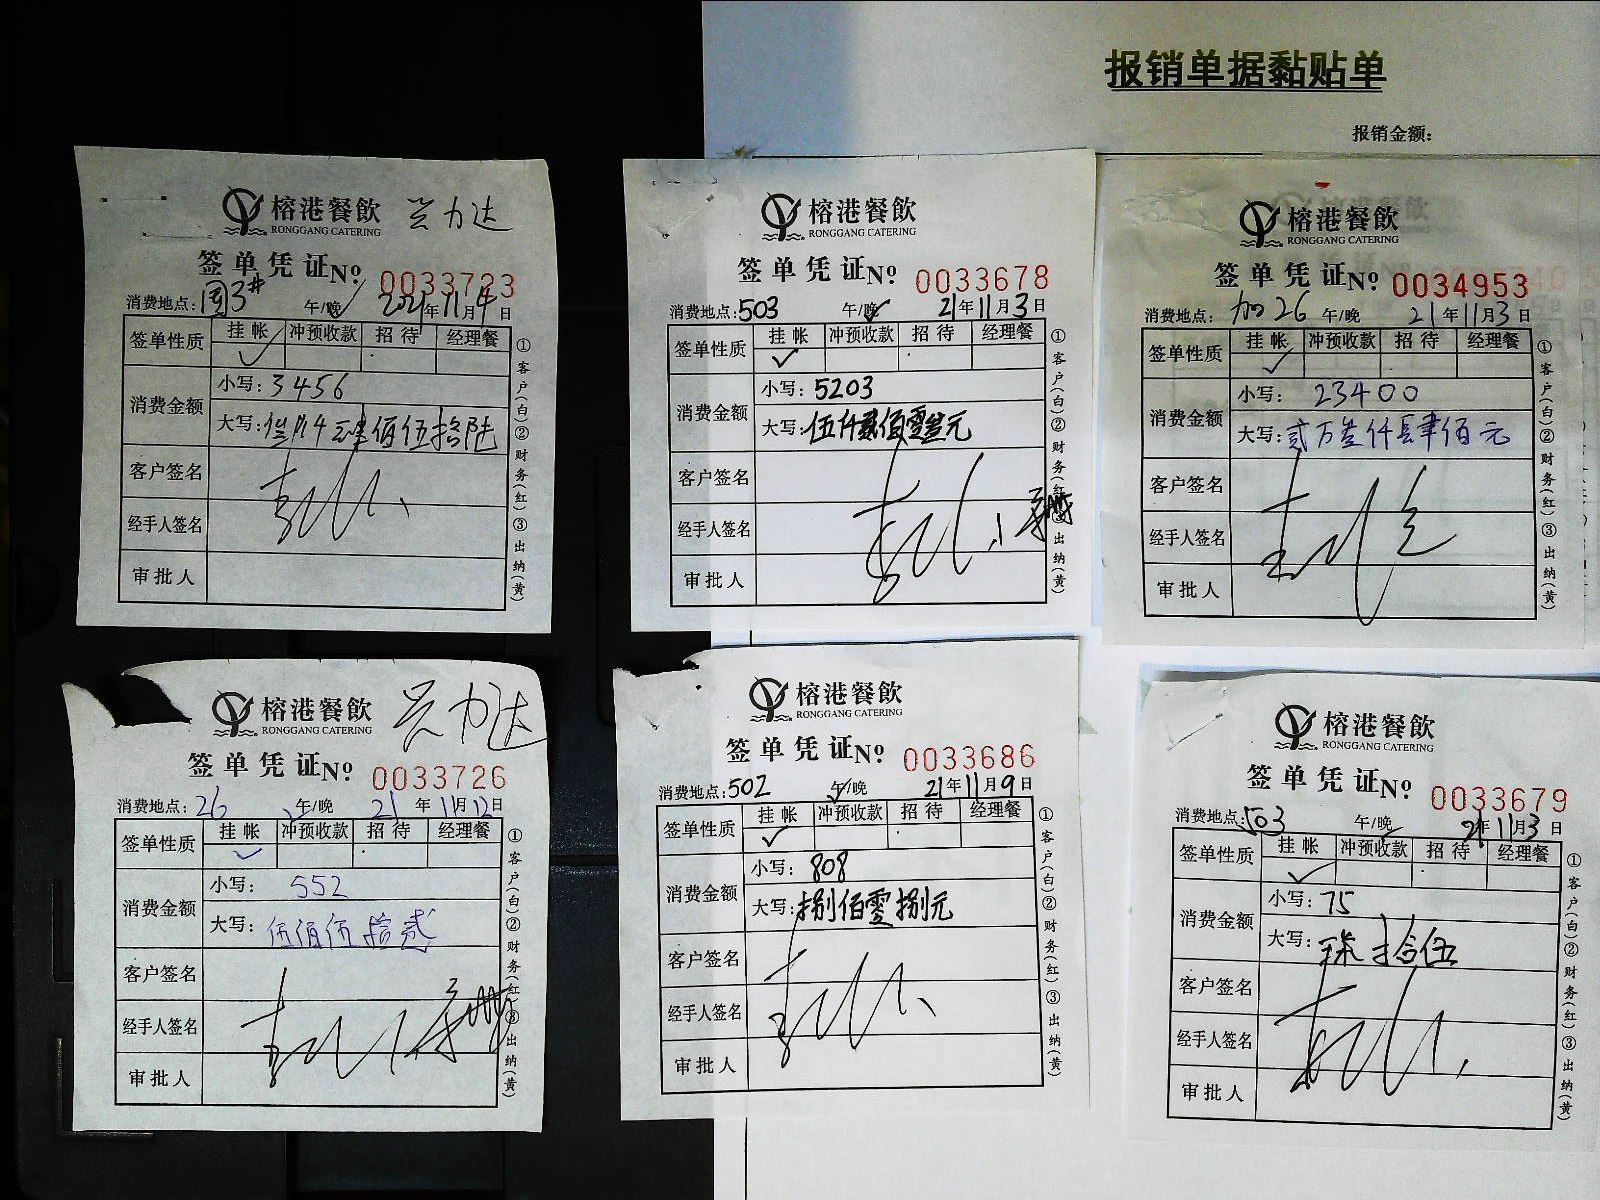 报销单据黏贴单
报销金额:
榕港餐飲 兴力达
RONGGANG CATERING
签单凭证 No 0033723
消费地点: 围3# 午/晚 2021年11月4日
签单性质 挂帐 冲预收款 招待 经理餐
消费金额 小写: 3456
大写: 叁仟肆佰伍拾陆
客户签名
经手人签名
审批人
①客户(白)②财务(红)③出纳(黄)
榕港餐飲
RONGGANG CATERING
签单凭证 No 0033678
消费地点: 503 午/晚 21年11月3日
签单性质 挂帐 冲预收款 招待 经理餐
消费金额 小写: 5203
大写: 伍仟贰佰零叁元
客户签名
经手人签名
审批人
①客户(白)②财务(红)③出纳(黄)
榕港餐飲
RONGGANG CATERING
签单凭证 No 0034953
消费地点: 加26 午/晚 21年11月3日
签单性质 挂帐 冲预收款 招待 经理餐
消费金额 小写: 23400
大写: 贰万叁仟肆佰元
客户签名
经手人签名
审批人
①客户(白)②财务(红)③出纳(黄)
榕港餐飲 兴力达
RONGGANG CATERING
签单凭证 No 0033726
消费地点: 26 午/晚 21年11月12日
签单性质 挂帐 冲预收款 招待 经理餐
消费金额 小写: 552
大写: 伍佰伍拾贰
客户签名
经手人签名
审批人
①客户(白)②财务(红)③出纳(黄)
榕港餐飲
RONGGANG CATERING
签单凭证 No 0033686
消费地点: 502 午/晚 21年11月9日
签单性质 挂帐 冲预收款 招待 经理餐
消费金额 小写: 808
大写: 捌佰零捌元
客户签名
经手人签名
审批人
①客户(白)②财务(红)③出纳(黄)
榕港餐飲
RONGGANG CATERING
签单凭证 No 0033679
消费地点: 503 午/晚 21年11月3日
签单性质 挂帐 冲预收款 招待 经理餐
消费金额 小写: 75
大写: 柒拾伍
客户签名
经手人签名
审批人
①客户(白)②财务(红)③出纳(黄)